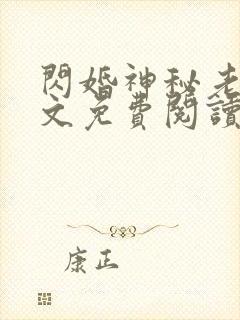 閃婚神秘老
文免費閱讀
康正